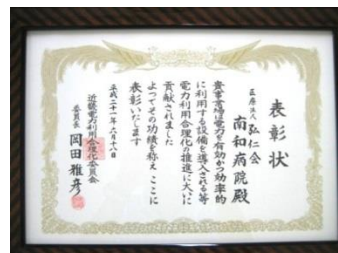 表彰状
医療法人 弘仁会
南和病院殿
貴事業場は電力を有効かつ効率的
に利用する設備を導入される等
電力利用合理化の推進に大いに
貢献されました
よってその功績を称えここに
表彰いたします
平成二十一年六月十八日
近畿電力利用合理化委員会
委員長 岡田雅彦